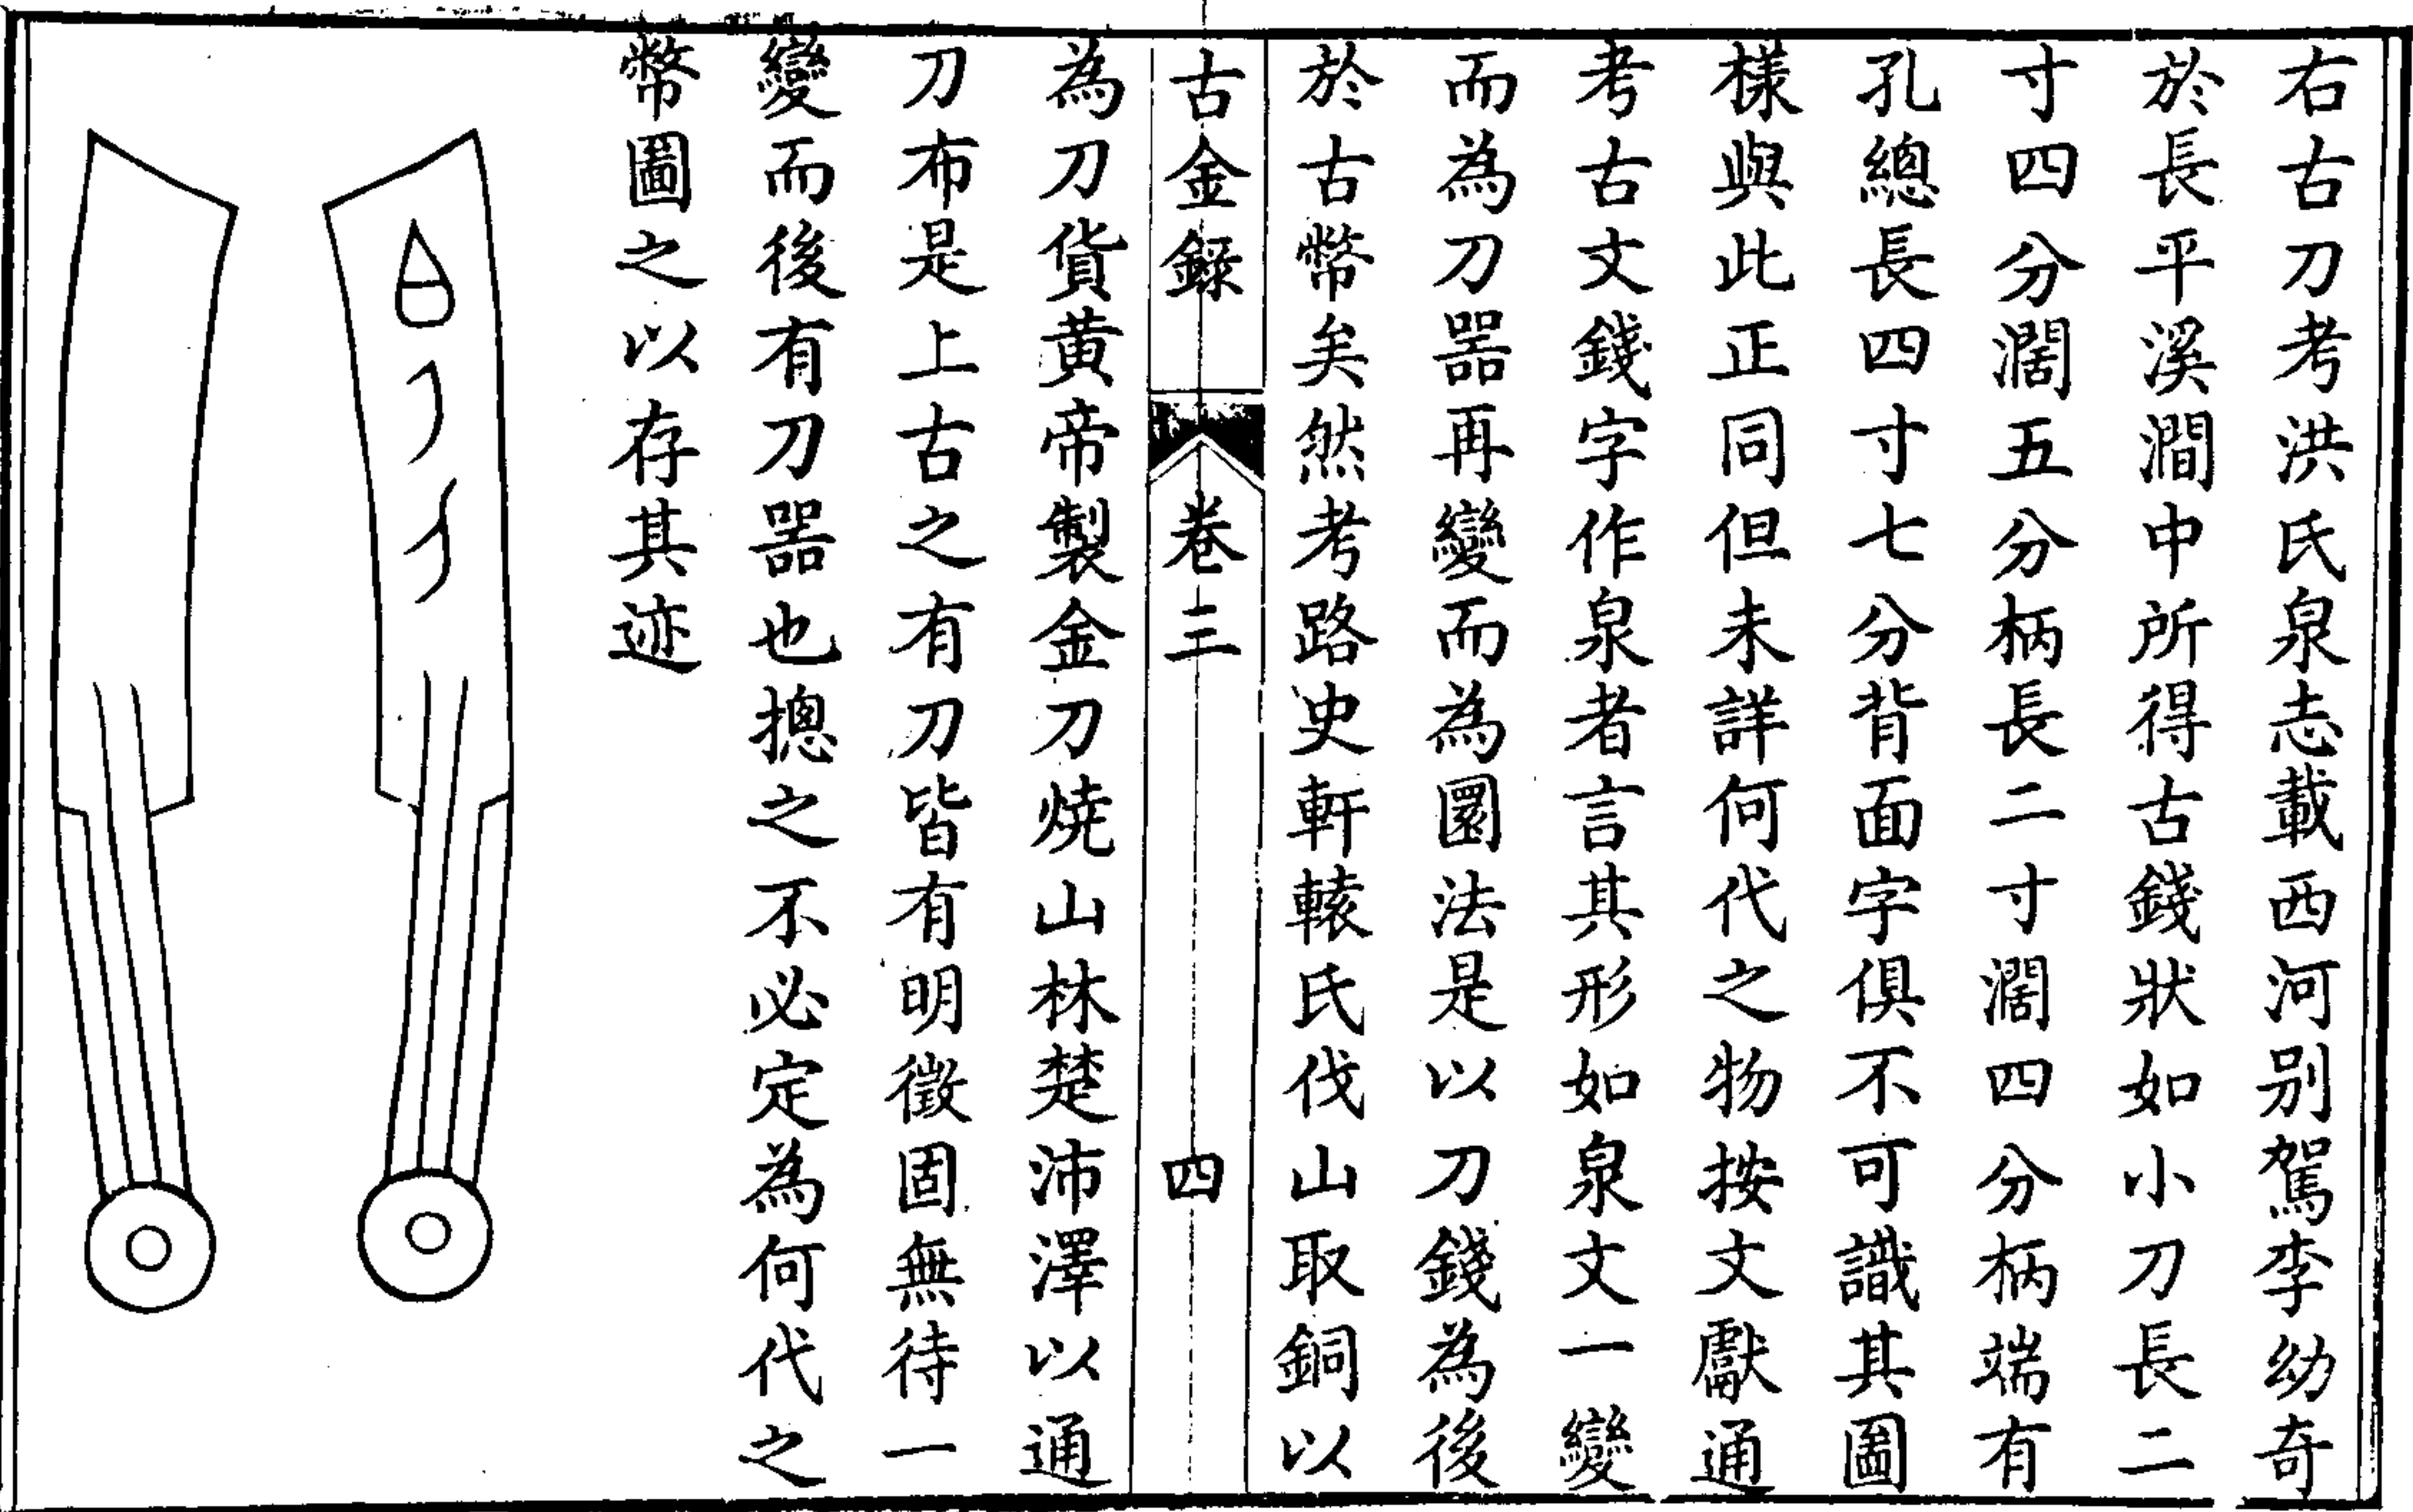 右古刀考洪氏泉志載西河别駕李幼奇
於長平溪澗中所得古錢狀如小刀長二
寸四分濶五分柄長二寸濶四分柄端有
孔總長四寸七分背面字俱不可識其圖
樣與此正同但未詳何代之物按文獻通
考古文錢字作泉者言其形如泉文一變
而為刀噐再變而為圜法是以刀錢為後
於古幣矣然考路史軒轅氏伐山取銅以
古金錄 卷三 四
為刀貨黄帝製金刀燒山林楚沛澤以通
刀布是上古之有刀皆有明徵固無待一
變而後有刀噐也摠之不必定為何代之
幣圖之以存其迹